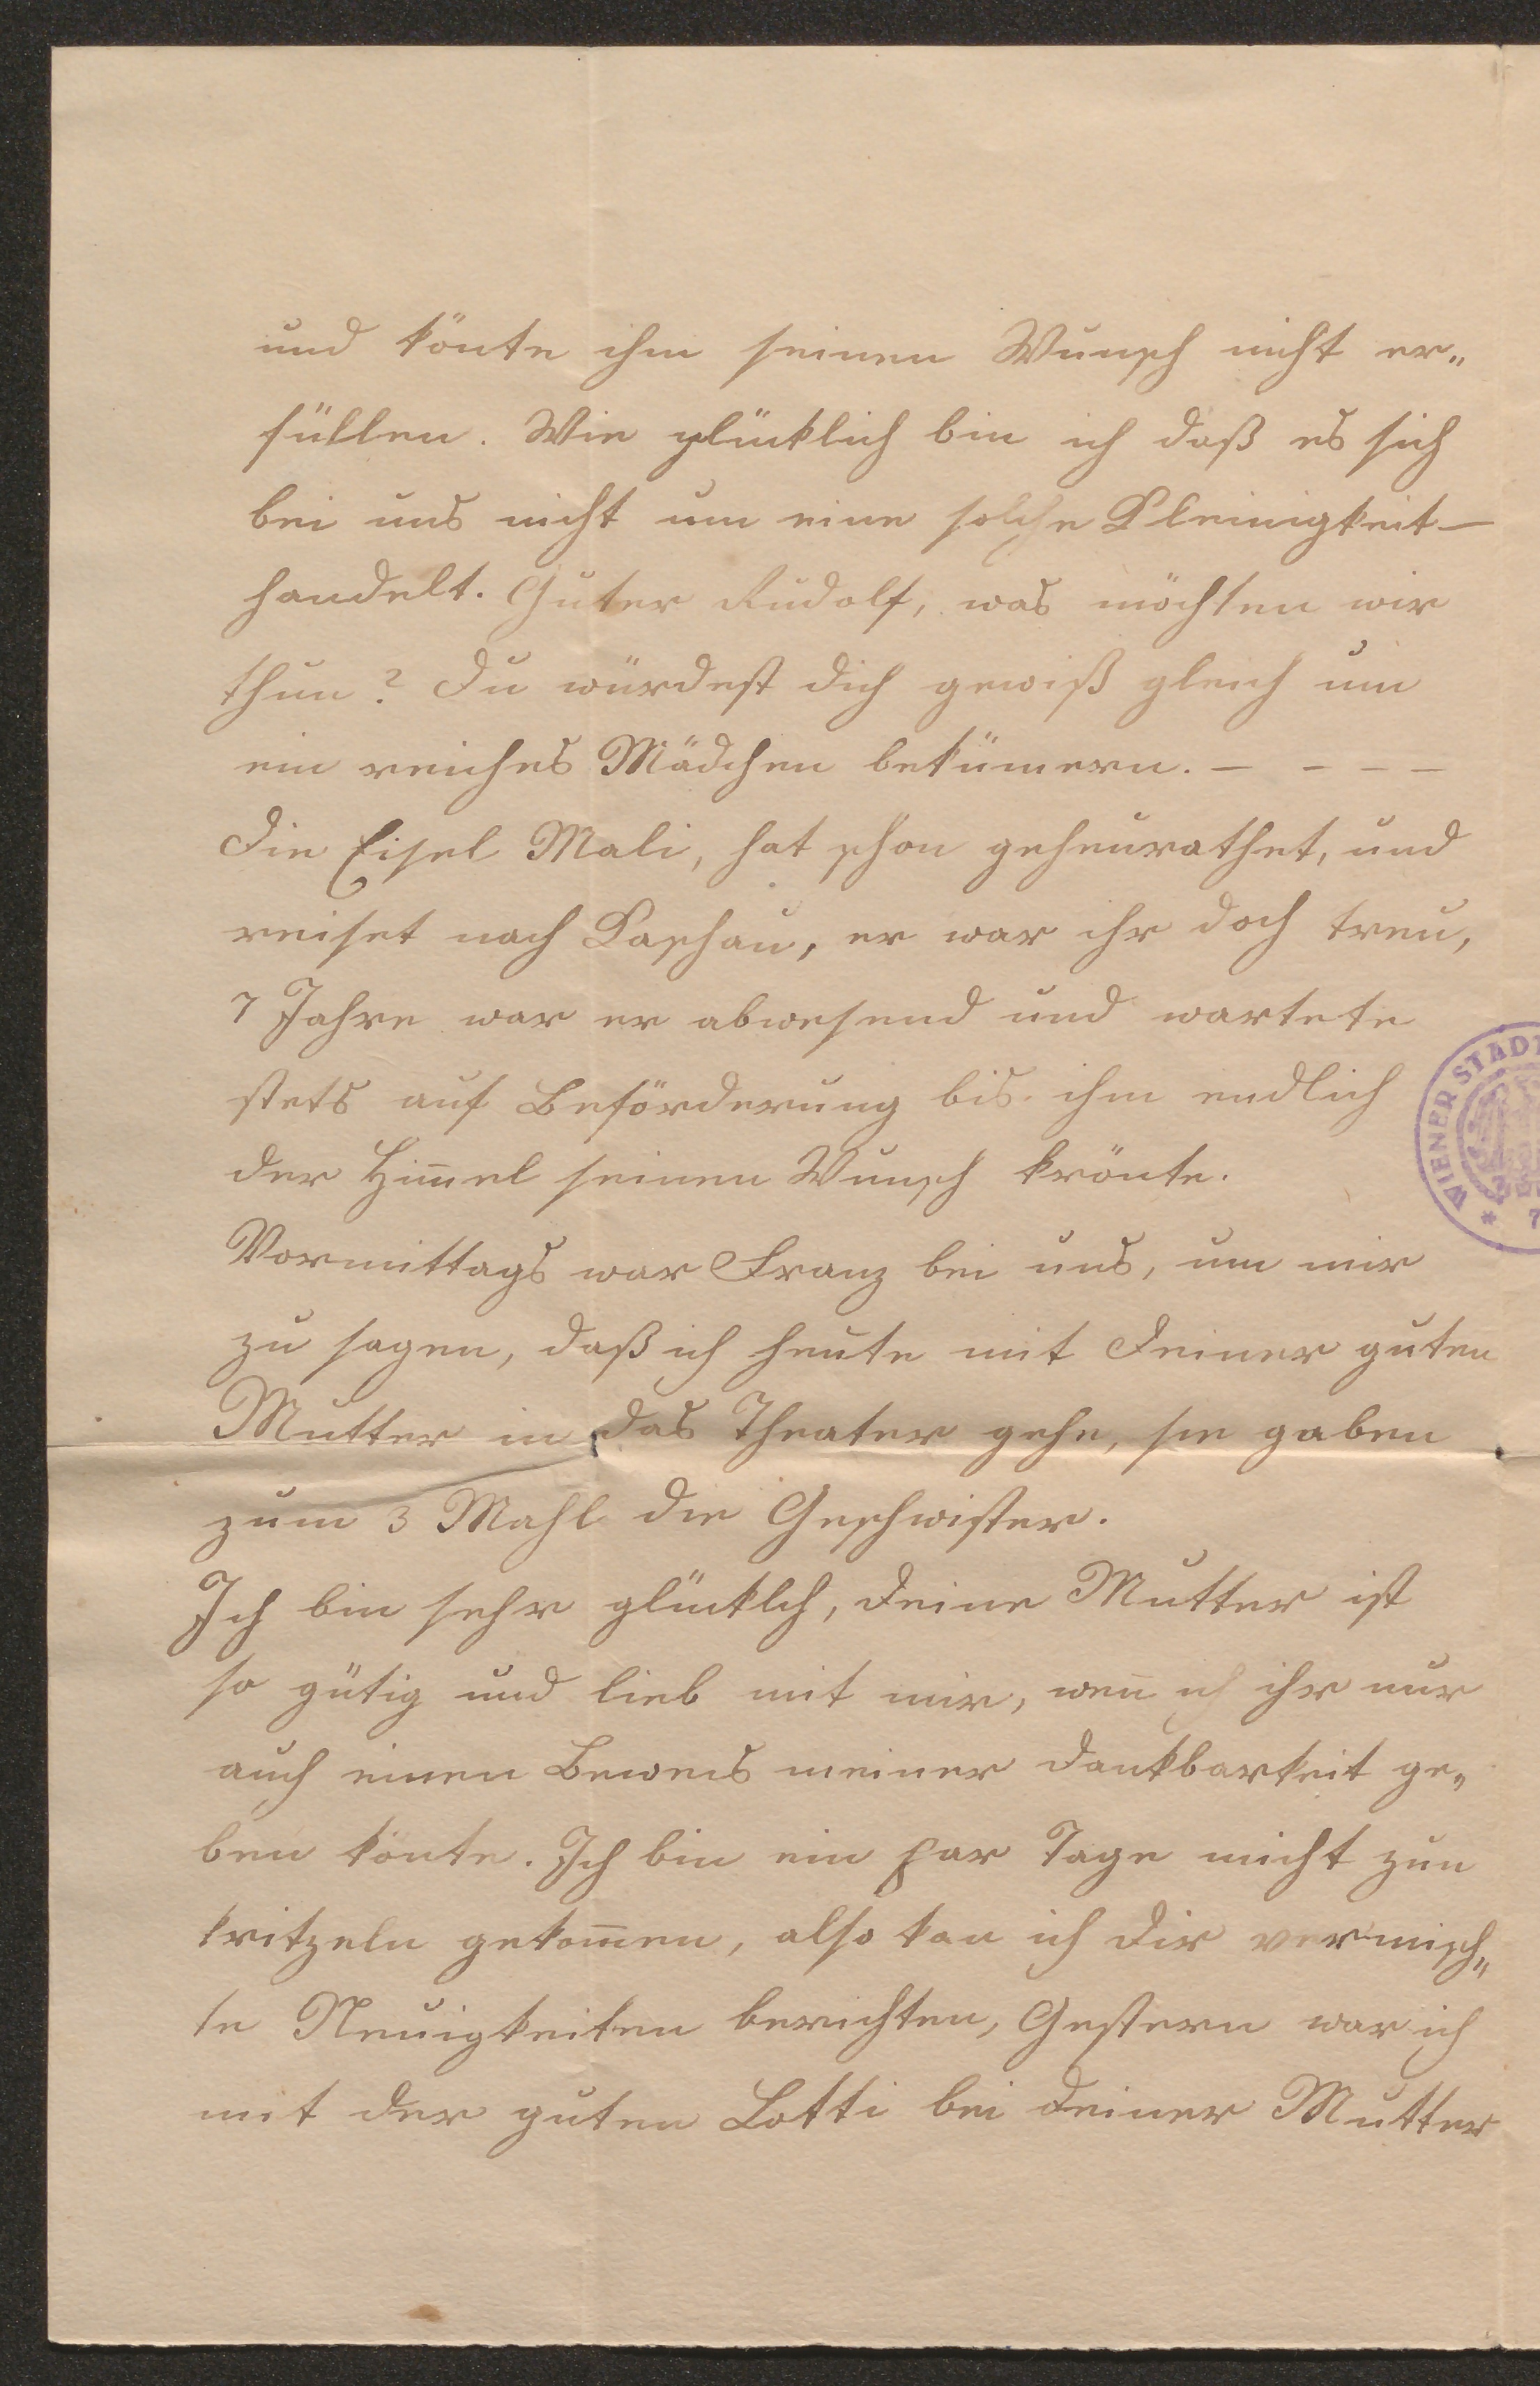 und könte ihm seinen Wunsch nicht er„
füllen. Wie glücklich bin ich daß es sich
bei uns nicht um eine solche Kleinigkeit—
handelt. Guter Rudolf, was möchten wir
thun? Du würdest dich gewiß gleich um
ein reiches Mädchen bekümern. – – – –
Die Eisel Mali, hat schon geheurathet, und
reiset nach Kaschau, er war ihr doch treu,
7 Jahre war er abwesend und wartete
stets auf Beförderung bis ihm endlich
der Him̅el seinen Wunsch krönte.
Vormittags war Franz bei uns, um mir
zu sagen, daß ich heute mit Deiner guten
Mutter in das Theater gehe, sie gaben
zum 3 Mahl die Geschwister.
Ich bin sehr glücklch, Deine Mutter ist
so gütig und lieb mit mir, wen̅ ich ihr nur
auch einen Beweis meiner Dankbarkeit ge„
ben könte. Ich bin ein par Tage nicht zun
kritzeln gekom̅en, also kan ich Dir vermisch„
te Neuigkeiten berichten, Gestern war ich
mit der guten Lotti bei Deiner Mutter
WIENER STADT
* 7